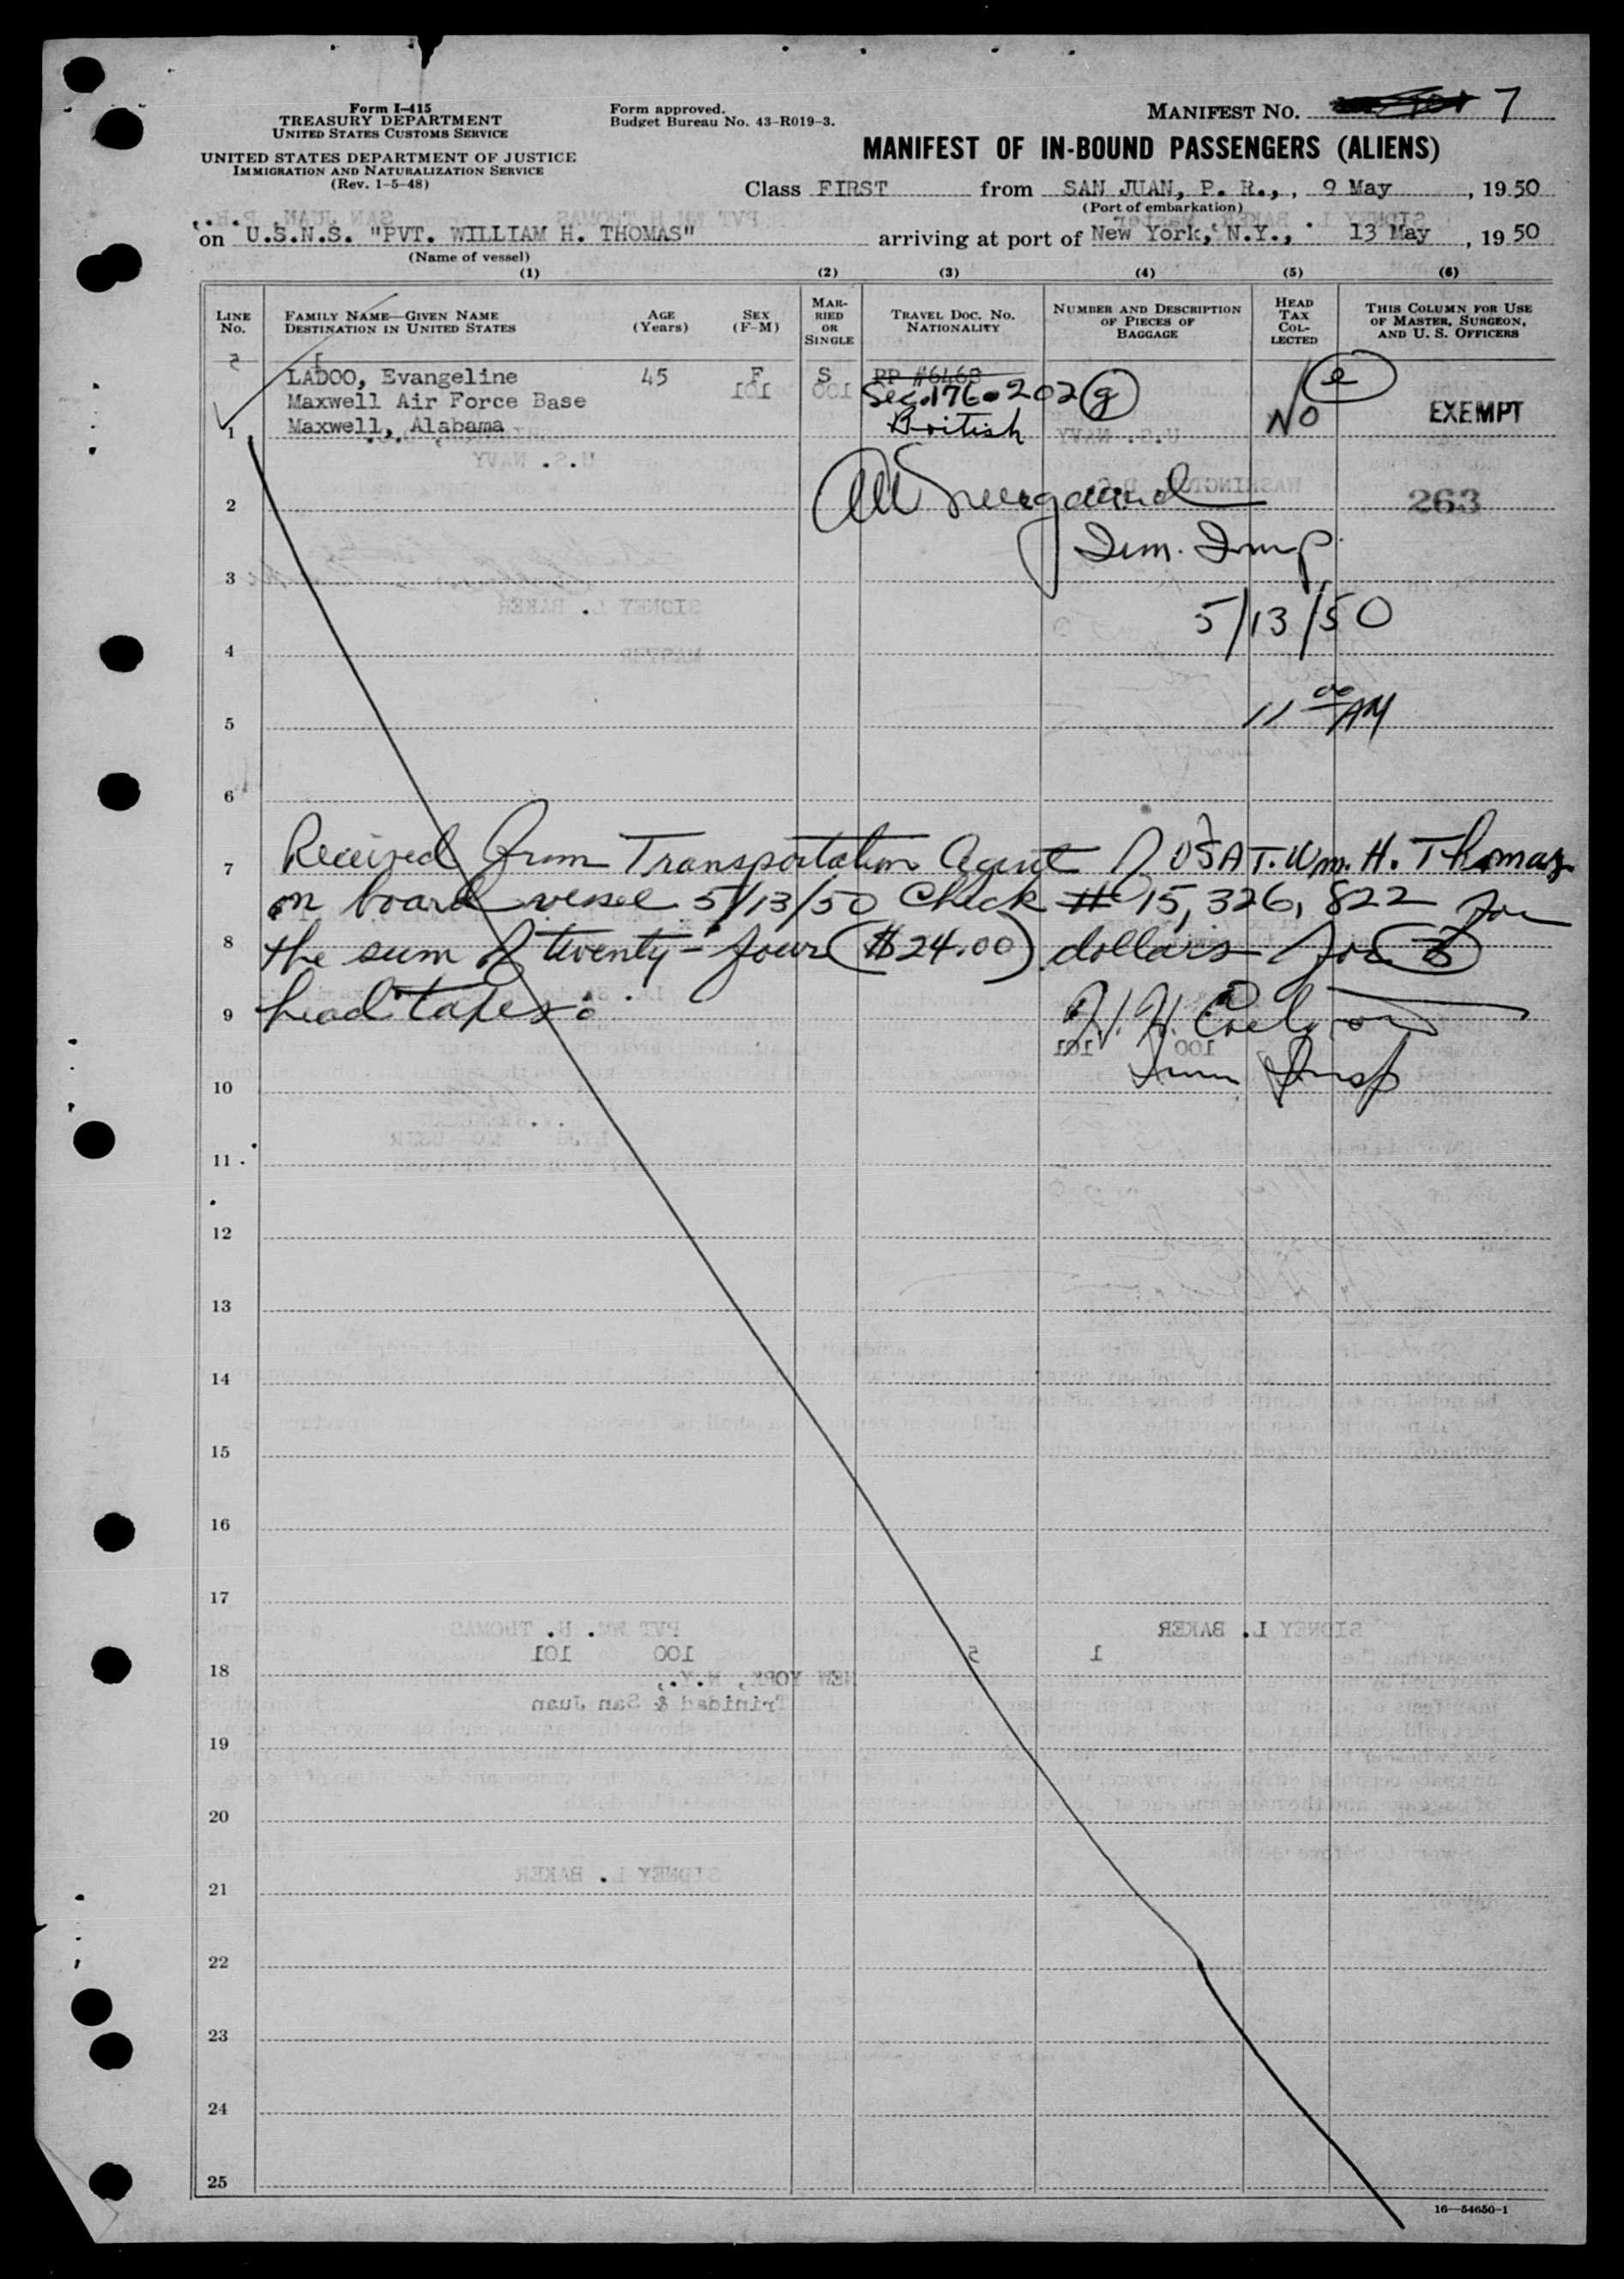 Form I-415
TREASURY DEPARTMENT
UNITED STATES CUSTOMS SERVICE
UNITED STATES DEPARTMENT OF JUSTICE
IMMIGRATION AND NATURALIZATION SERVICE
(Rev. 1-5-48)
Form approved.
Budget Bureau No. 43-R019-3.
MANIFEST NO. 7
MANIFEST OF IN-BOUND PASSENGERS (ALIENS)
Class FIRST from SAN JUAN, P. R., , 9 May , 19 50
(Port of embarkation)
on U.S.N.S. "PVT. WILLIAM H. THOMAS" arriving at port of New York, N.Y., 13 May , 19 50
(Name of vessel)
(1) (2) (3) (4) (5) (6)
LINE No.
FAMILY NAME—GIVEN NAME
DESTINATION IN UNITED STATES
AGE (Years)
SEX (F-M)
MARRIED OR SINGLE
TRAVEL DOC. NO. NATIONALITY
NUMBER AND DESCRIPTION OF PIECES OF BAGGAGE
HEAD TAX COLLECTED
THIS COLUMN FOR USE OF MASTER, SURGEON, AND U. S. OFFICERS
LADOO, Evangeline 45 F S PP #6463
Maxwell Air Force Base Sec. 176.202 (g) NO (e) EXEMPT
1 Maxwell, Alabama British
2 263
Imm. Insp.
3
5/13/50
4
11 00 AM
5
6
7 Received from Transportation Agent of USAT. Wm. H. Thomas
on board vessel 5/13/50 Check # 15,326,822 for
8 the sum of twenty-four ($24.00) dollars for 3
9 head taxes.
H. H.
Imm Insp
10
11
12
13
14
15
16
17
18
19
20
21
22
23
24
25
16—54650-1